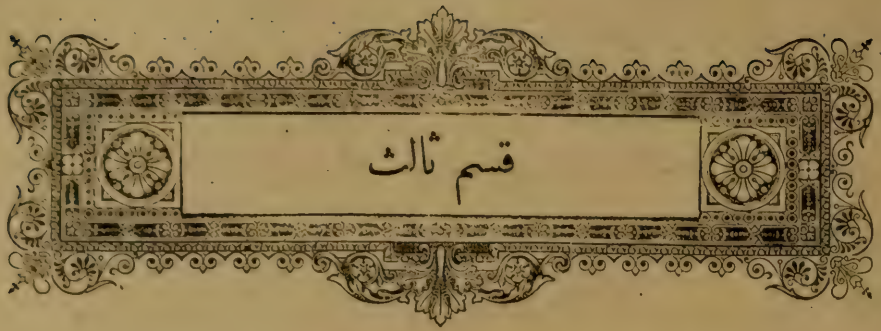 قسم ثالث